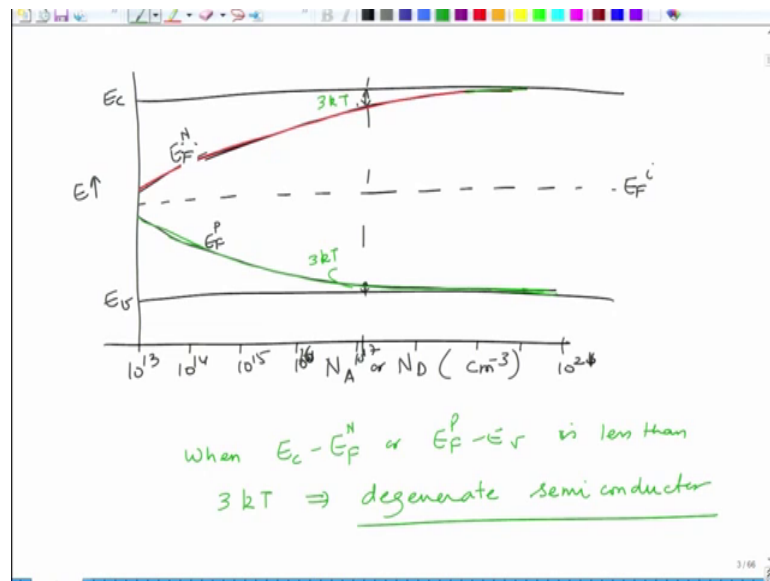 Ec
3kT
E_F^N
E↑
E_F^i
E_F^P
3kT
Ev
10^13 10^14 10^15 10^16 10^17 N_A or N_D (cm^-3)
when Ec - E_F^N or E_F^P - Ev is less than
3kT ⇒ degenerate semiconductor
3/66